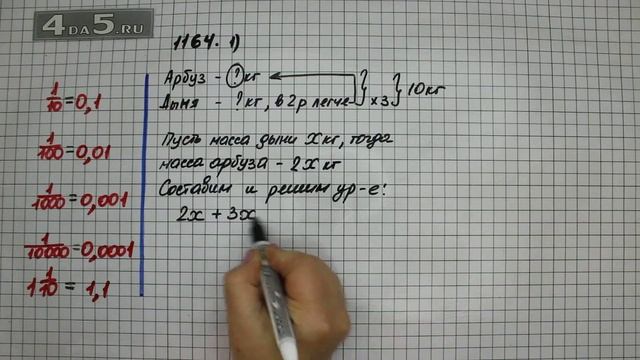 4DA5.RU
1164. 1)
Арбуз - ? кг
Дыня - ? кг, в 2 р легче } х 3 } 10 кг
Пусть масса дыни х кг, тогда
масса арбуза - 2х кг
Составим и решим ур-е:
2х + 3х
1/10 = 0,1
1/100 = 0,01
1/1000 = 0,001
1/10000 = 0,0001
1 1/10 = 1,1